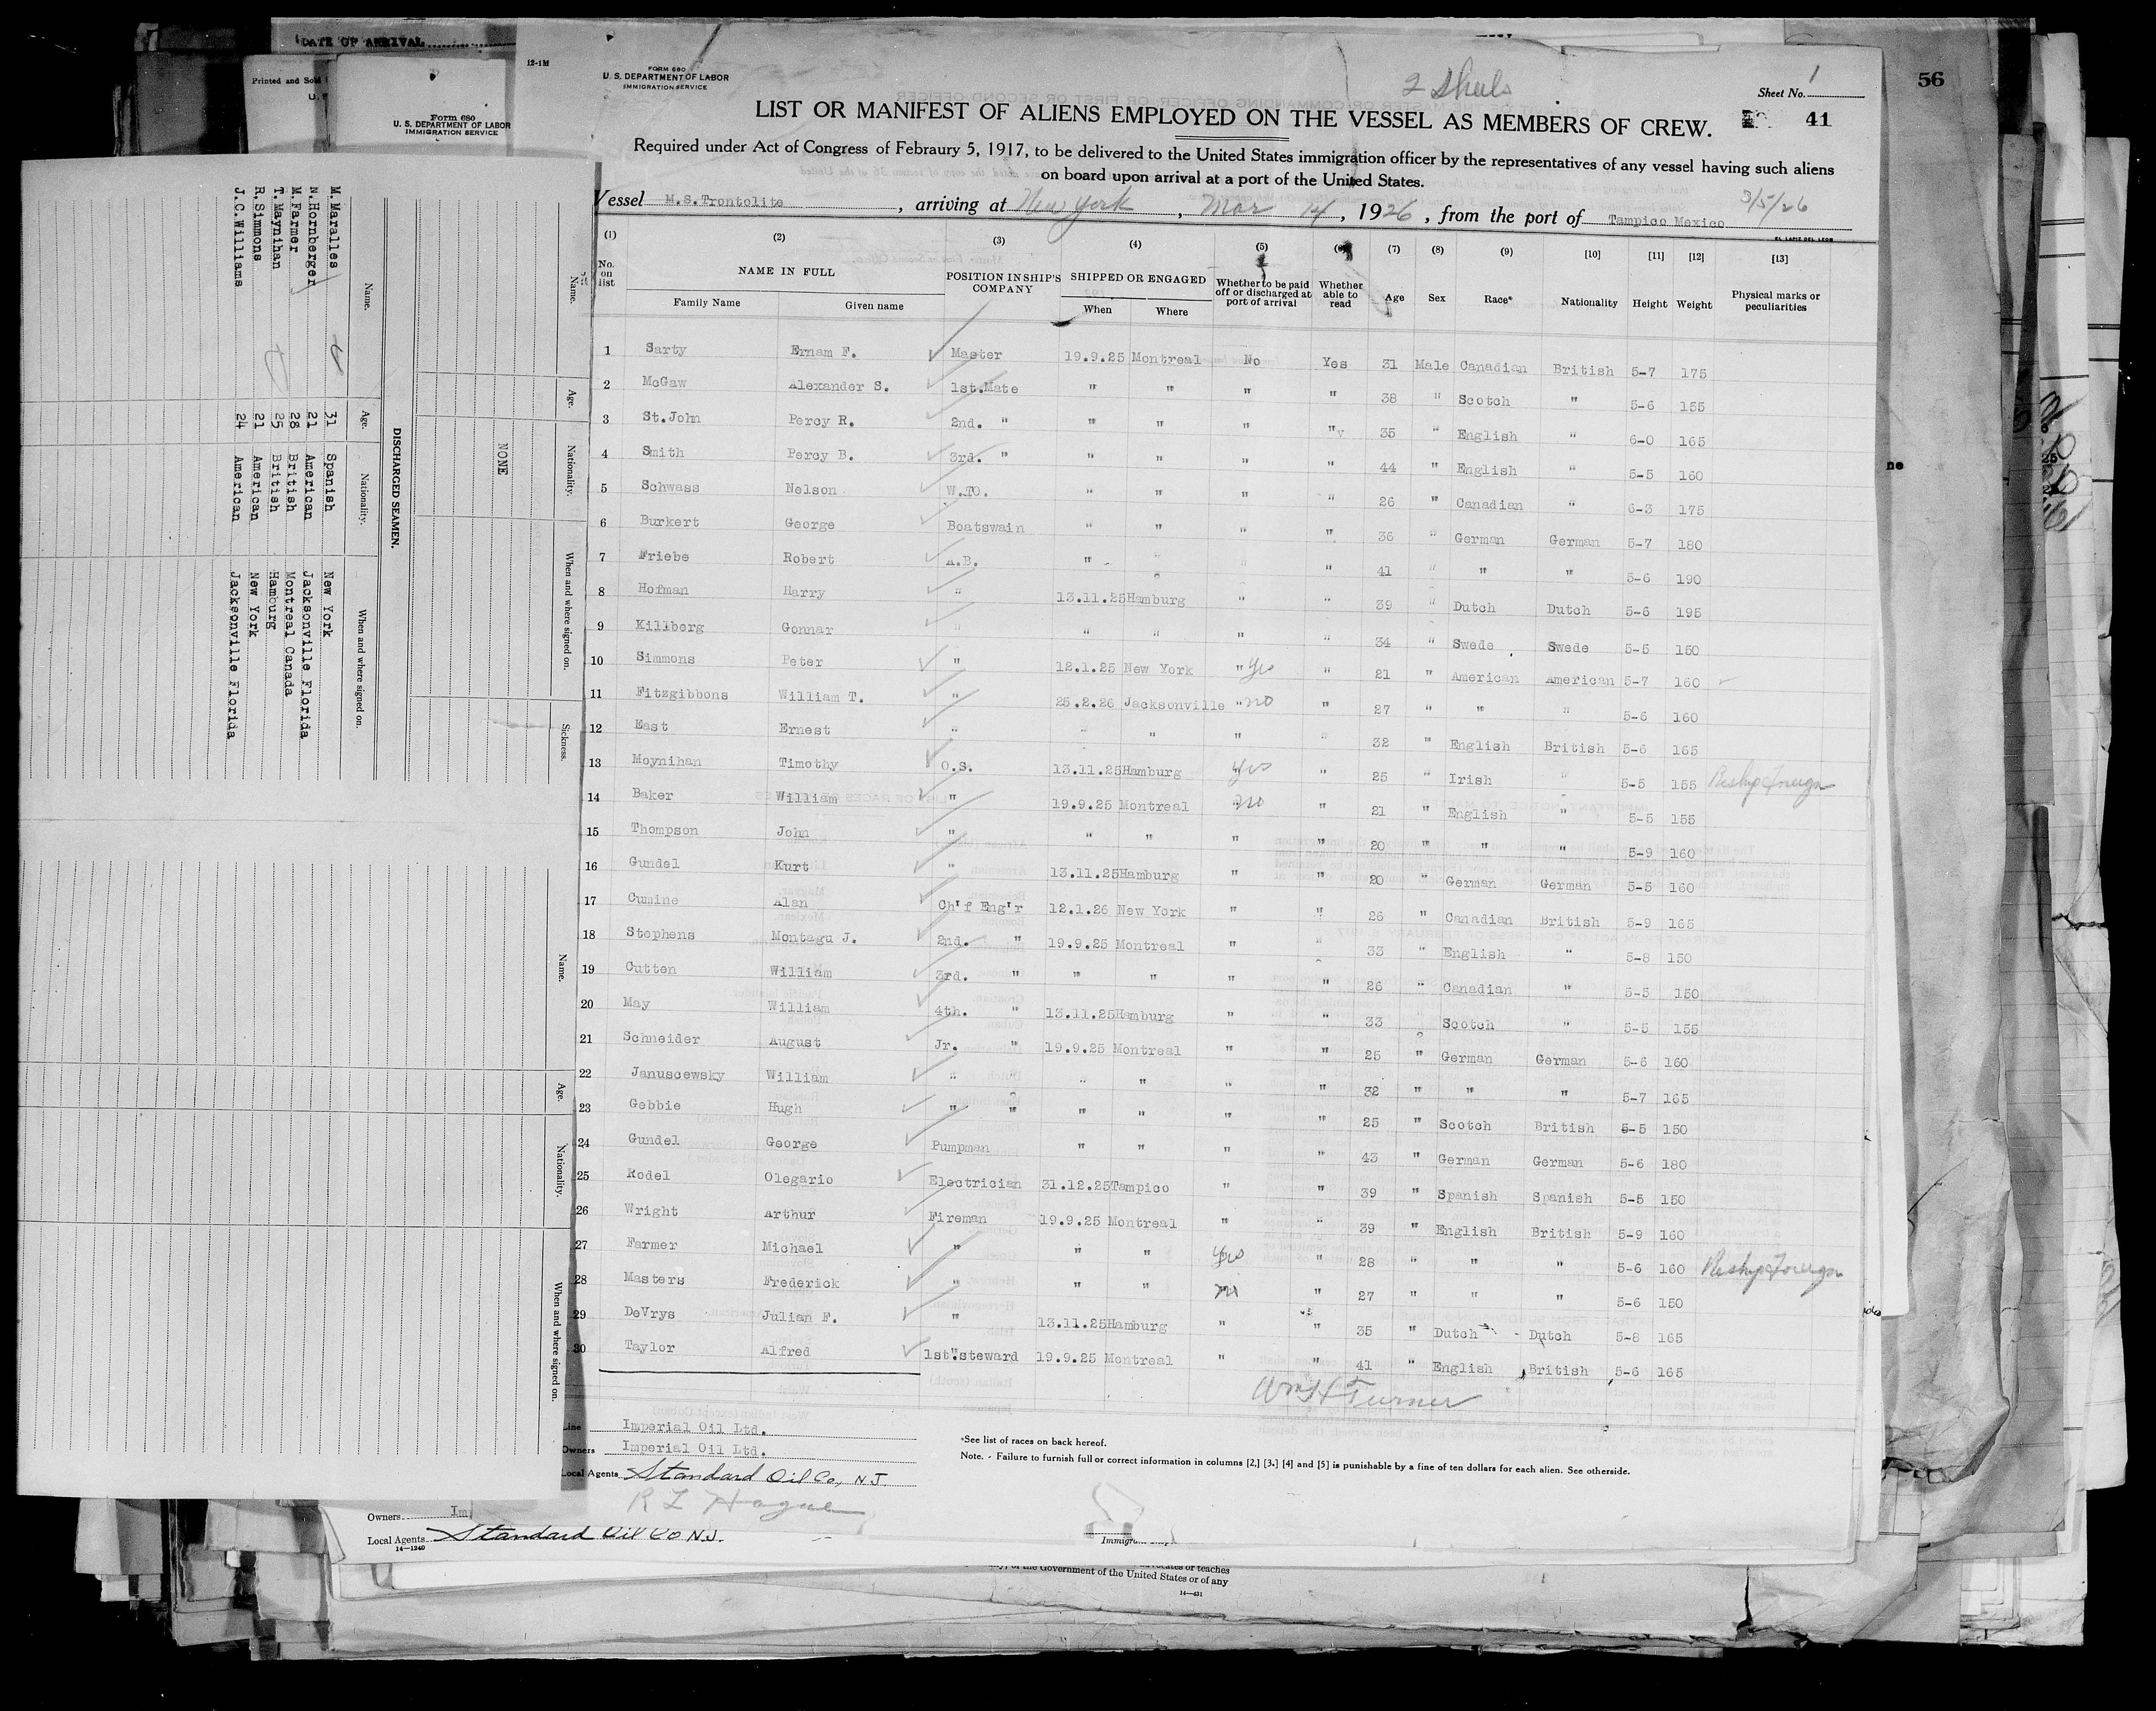 56
DATE OF ARRIVAL
12-1M
Printed and Sold
Form 680
U. S. DEPARTMENT OF LABOR
IMMIGRATION SERVICE
FORM 680
U. S. DEPARTMENT OF LABOR
IMMIGRATION SERVICE
2 Sheets
Sheet No. 1
41
LIST OR MANIFEST OF ALIENS EMPLOYED ON THE VESSEL AS MEMBERS OF CREW.
Required under Act of Congress of Febraury 5, 1917, to be delivered to the United States immigration officer by the representatives of any vessel having such aliens
on board upon arrival at a port of the United States.
3/5/26
Vessel M.S.Trontolite, arriving at New York, Mar 14, 1926, from the port of Tampico Mexico
EL LAPIZ DEL LEON
(1) (2) (3) (4) (5) (6) (7) (8) (9) [10] [11] [12] [13]
No. on list NAME IN FULL POSITION IN SHIP'S COMPANY SHIPPED OR ENGAGED Whether to be paid off or discharged at port of arrival Whether able to read Age Sex Race* Nationality Height Weight Physical marks or peculiarities
Family Name Given name When Where
1 Sarty Ernam F. Master 19.9.25 Montreal No Yes 31 Male Canadian British 5-7 175
2 McGaw Alexander S. 1st.Mate " " " " 38 " Scotch " 5-6 155
3 St.John Percy R. 2nd. " " " " " v 35 " English " 6-0 165
4 Smith Percy B. 3rd. " " " " " 44 " English " 5-5 160
5 Schwass Nelson W.TO. " " " " 26 " Canadian " 6-3 175
6 Burkert George Boatswain " " " " 36 " German German 5-7 180
7 Friebe Robert A.B. " " " " 41 " " " 5-6 190
8 Hofman Harry " 13.11.25 Hamburg " " 39 " Dutch Dutch 5-6 195
9 Killberg Gonnar " " " " " 34 " Swede Swede 5-5 150
10 Simmons Peter " 12.1.25 New York " Yes " 21 " American American 5-7 160
11 Fitzgibbons William T. " 25.2.26 Jacksonville " no " 27 " " " 5-6 160
12 East Ernest " " " " " 32 " English British 5-6 165
13 Moynihan Timothy O.S. 13.11.25 Hamburg yes " 25 " Irish " 5-5 155 Reship foreign
14 Baker William " 19.9.25 Montreal no " 21 " English " 5-5 155
15 Thompson John " " " " " 20 " " " 5-9 160
16 Gundel Kurt " 13.11.25 Hamburg " " 20 " German German 5-5 160
17 Cumine Alan Ch'f Eng'r 12.1.26 New York " " 26 " Canadian British 5-9 165
18 Stephens Montagu J. 2nd. " 19.9.25 Montreal " " 33 " English " 5-8 150
19 Cutten William 3rd. " " " " " 26 " Canadian " 5-5 150
20 May William 4th. " 13.11.25 Hamburg " " 33 " Scotch " 5-5 155
21 Schneider August Jr. " 19.9.25 Montreal " " 25 " German German 5-6 160
22 Januscewsky William " " " " " 32 " " " 5-7 165
23 Gebbie Hugh " " " " " " 25 " Scotch British 5-5 150
24 Gundel George Pumpman " " " " 43 " German German 5-6 180
25 Rodel Olegario Electrician 31.12.25 Tampico " " 39 " Spanish Spanish 5-5 150
26 Wright Arthur Fireman 19.9.25 Montreal " " 39 " English British 5-9 160
27 Farmer Michael " " " yes " 28 " " " 5-6 160 Reship foreign
28 Masters Frederick " " " no " 27 " " " 5-6 150
29 DeVrys Julian F. " 13.11.25 Hamburg " " 35 " Dutch - Dutch 5-8 165
30 Taylor Alfred 1st.steward 19.9.25 Montreal " " 41 " English British 5-6 165
Wm H Turner
Line Imperial Oil Ltd.
Owners Imperial Oil Ltd.
Local Agents Standard Oil Co, N J.
R L Hague
*See list of races on back hereof.
Note. - Failure to furnish full or correct information in columns [2,] [3,] [4] and [5] is punishable by a fine of ten dollars for each alien. See otherside.
Owners Im
Local Agents Standard Oil Co N.J.
14—1240
of the Government of the United States or of any
14—431
Name. Age. Nationality. When and where signed on. Sickness.
NONE
DISCHARGED SEAMEN.
Name. Age. Nationality. When and where signed on.
M. Maralles 31 Spanish New York
N. Hornberger 21 American Jacksonville Florida
M. Farmer 28 British Montreal Canada
T. Maynihan 25 British Hamburg
R. Simmons 21 American New York
J. C. Williams 24 American Jacksonville Florida
Name. Age. Nationality. When and where signed on.
ne